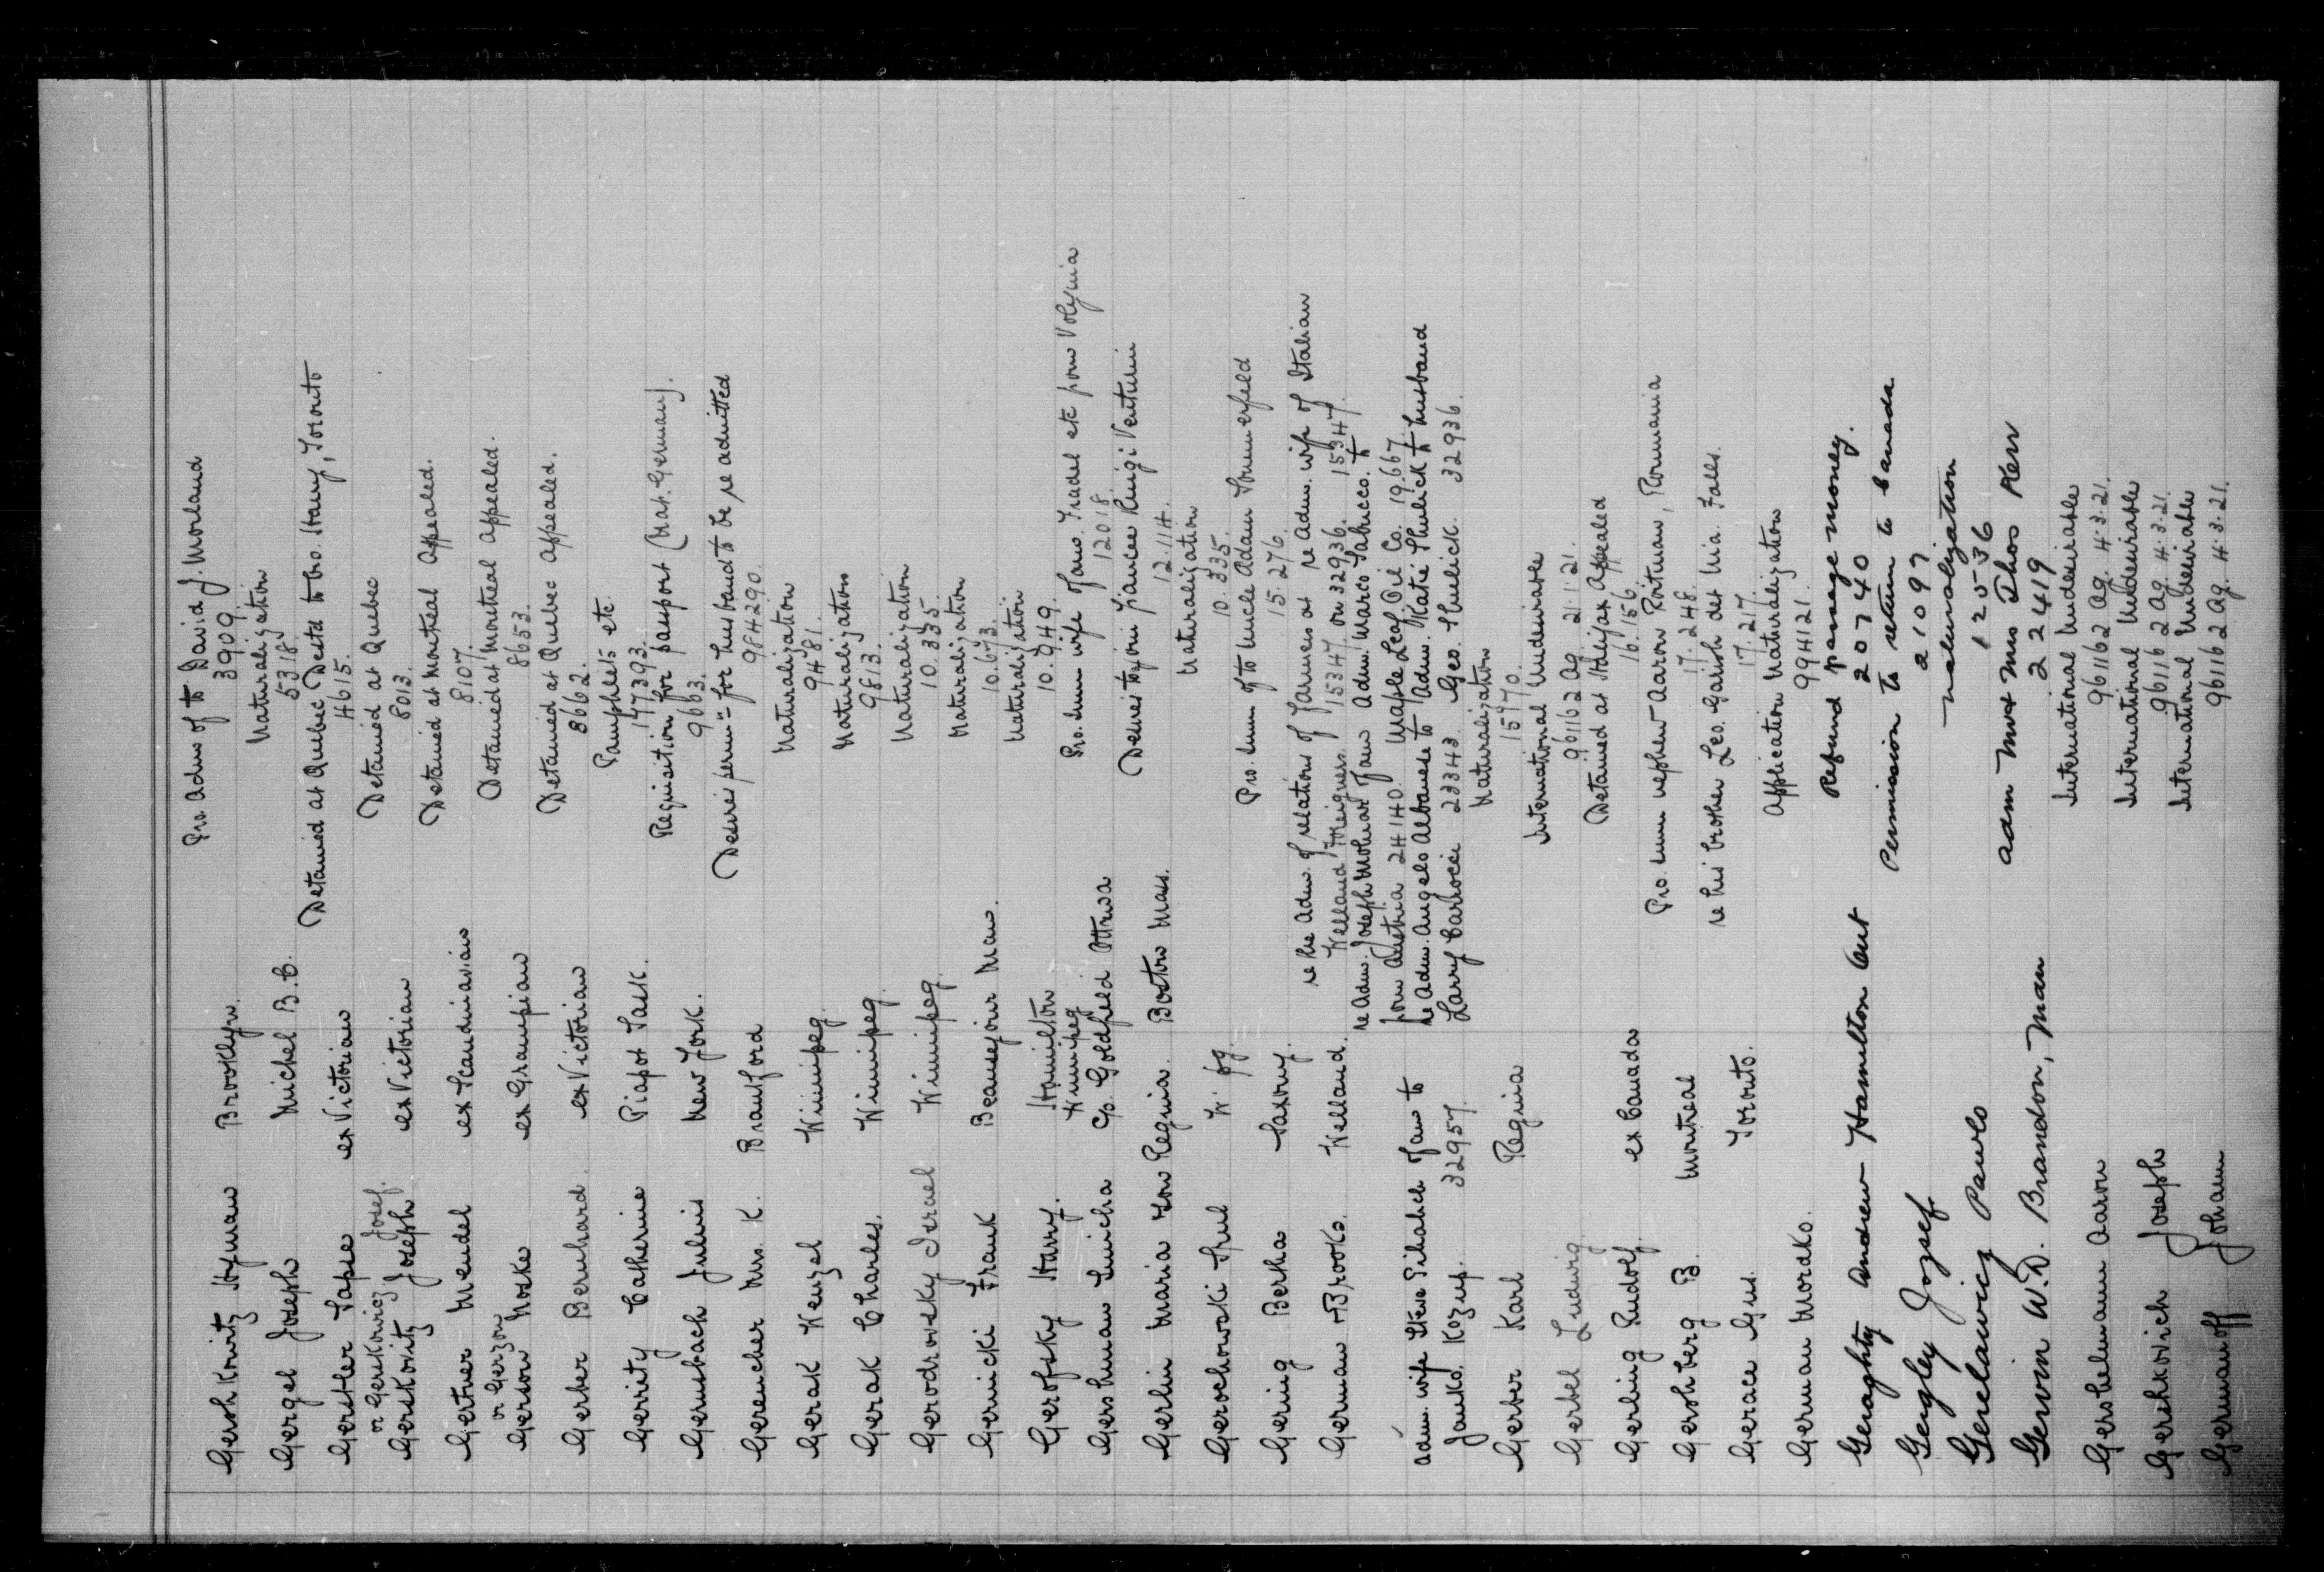 Gershkovitz Hyman Brooklyn. Pro. Adms of to David J. Morland
3909.
Gergel Joseph Michel B.C. Naturalization
5318.
Gerstler Sape ex Victorian Detained at Quebec Destd to bro. Harry, Toronto
4615.
or Gerskowicz Josef.
Gerskovitz Joseph ex Victorian Detained at Quebec
8013.
Gertner Mendel ex Scandinavian Detained at Montreal Appealed.
8107.
or Gerzon
Gerson Moske ex Grampian Detained at Montreal Appealed.
8653.
Gerber Bernhard. ex Victorian Detained at Quebec Appealed.
8662.
Gerrity Catherine Piapot Sask. Pamphlets etc.
147393.
Gernsbach Julius New York. Requisition for passport (Nat. German).
9663.
Gerencher Mrs. K. Brantford Desires permn for husband to be re admitted
984290.
Gerak Wenzel Winnipeg. Naturalization
9481.
Gerak Charles. Winnipeg. Naturalization
9813.
Gerodrovsky Israel Winnipeg. Naturalization
10.335.
Gernicki Frank Beausejour Man. Naturalization
10.673.
Gerofsky Harry. Hamilton Naturalization
10.949.
Winnipeg
Gershman Simcha c/o. Goldfield Ottawa Pro. Imm wife fam. Fradel etc from Volynia
12018.
Gerlin Maria now Regina. Boston Mass. Desires to join fiancee Luigi Venturin
12.114.
Geroschowski Srul W. pg. Naturalization
10.335.
Gering Bertha Saxony. Pro. Imm of to Uncle Adam Sommerfeld
15.276.
German Brooks. Welland. re the Adm. of relations of farmers at re Adm. wife of Italian
Welland foreigners. 15347. on 32936. 15347.
re Adm. Joseph Mohirat fam Adm. Marco Sabucco. to
from Austria 24140. Maple Leaf Oil Co. 19.667.
adm. wife Steve Pihalich fam to re Adm. Angelo Albanese to Adm. Katie Shulick to husband
Janko. Kozup. 32957. Larry Carbocci 23343. Geo. Shulick. 32936.
Gerber Karl Regina Naturalization
15970.
Gerbel Ludwig. International Undesirable
961162 Ag. 21.1.21.
Gerling Rudolf. ex Canada Detained at Halifax Appealed
16.156.
Gershberg B. Montreal Pro. Imm nephew Aaron Roitman, Roumania
17.248.
Gerace Gus. Toronto. re his brother Leo. Garish det Nia. Falls.
17.27.
German Mordko. Application Naturalization
994121.
Geraghty Andrew Hamilton Ont Refund passage money.
20740
Gergley Jozsef Permission to return to Canada
21097
Gerelawicz Pawlo Naturalization
12536
Gerwin W.D. Brandon, Man Adm Mrs Thos Kerr
22419
Gershelmann Aaron International Undesirable
961162 Ag. 4.3.21.
Gereshkovich Joseph International Undesirable
961162 Ag. 4.3.21.
Germanoff Johann International Undesirable
961162 Ag. 4.3.21.